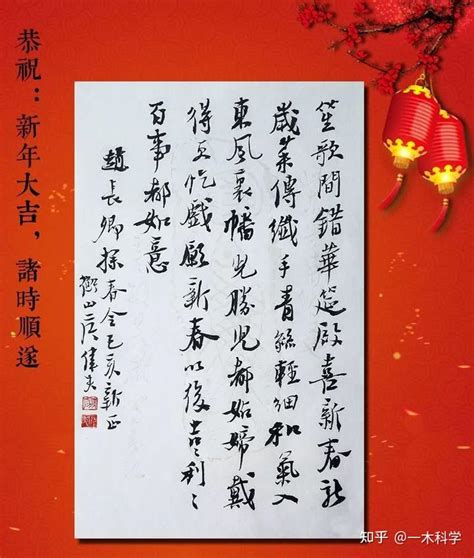 恭祝：新年大吉，諸時順遂
笙歌間錯華筵啟喜新春新
歲菜傳纖手青絲輕細和氣入
東風裏幡兒勝兒都姑媂戴
得更忔戲願新春以後吉〻利〻
百事都如意
趙長卿探春令己亥新正
山健夫
知乎 @一木科学